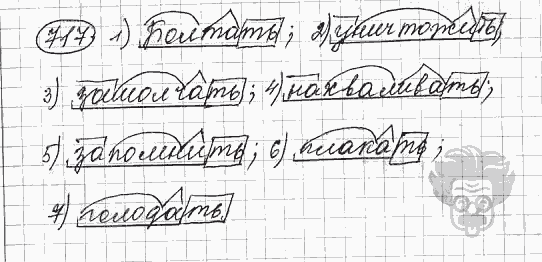 717 1) Болтать; 2) уничтожить;
3) замолчать; 4) нахваливать;
5) запомнить; 6) плакать;
7) голодать.